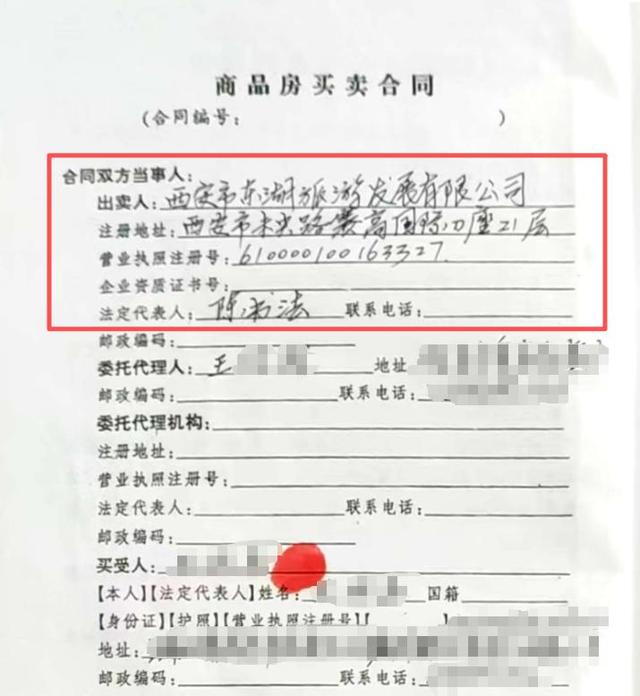 商品房买卖合同
(合同编号: )
合同双方当事人:
出卖人: 西安市东湖旅游发展有限公司
注册地址: 西安市未央路赛高国际D座21层
营业执照注册号: 610000100163327
企业资质证书号:
法定代表人: 陈书法 联系电话:
邮政编码:
委托代理人: 王 地址
邮政编码: 联系电话:
委托代理机构:
注册地址:
营业执照注册号:
法定代表人: 联系电话:
邮政编码:
买受人:
【本人】【法定代表人】姓名: 国籍
【身份证】【护照】【营业执照注册号】【
地址:
邮政编码: 联系电话: